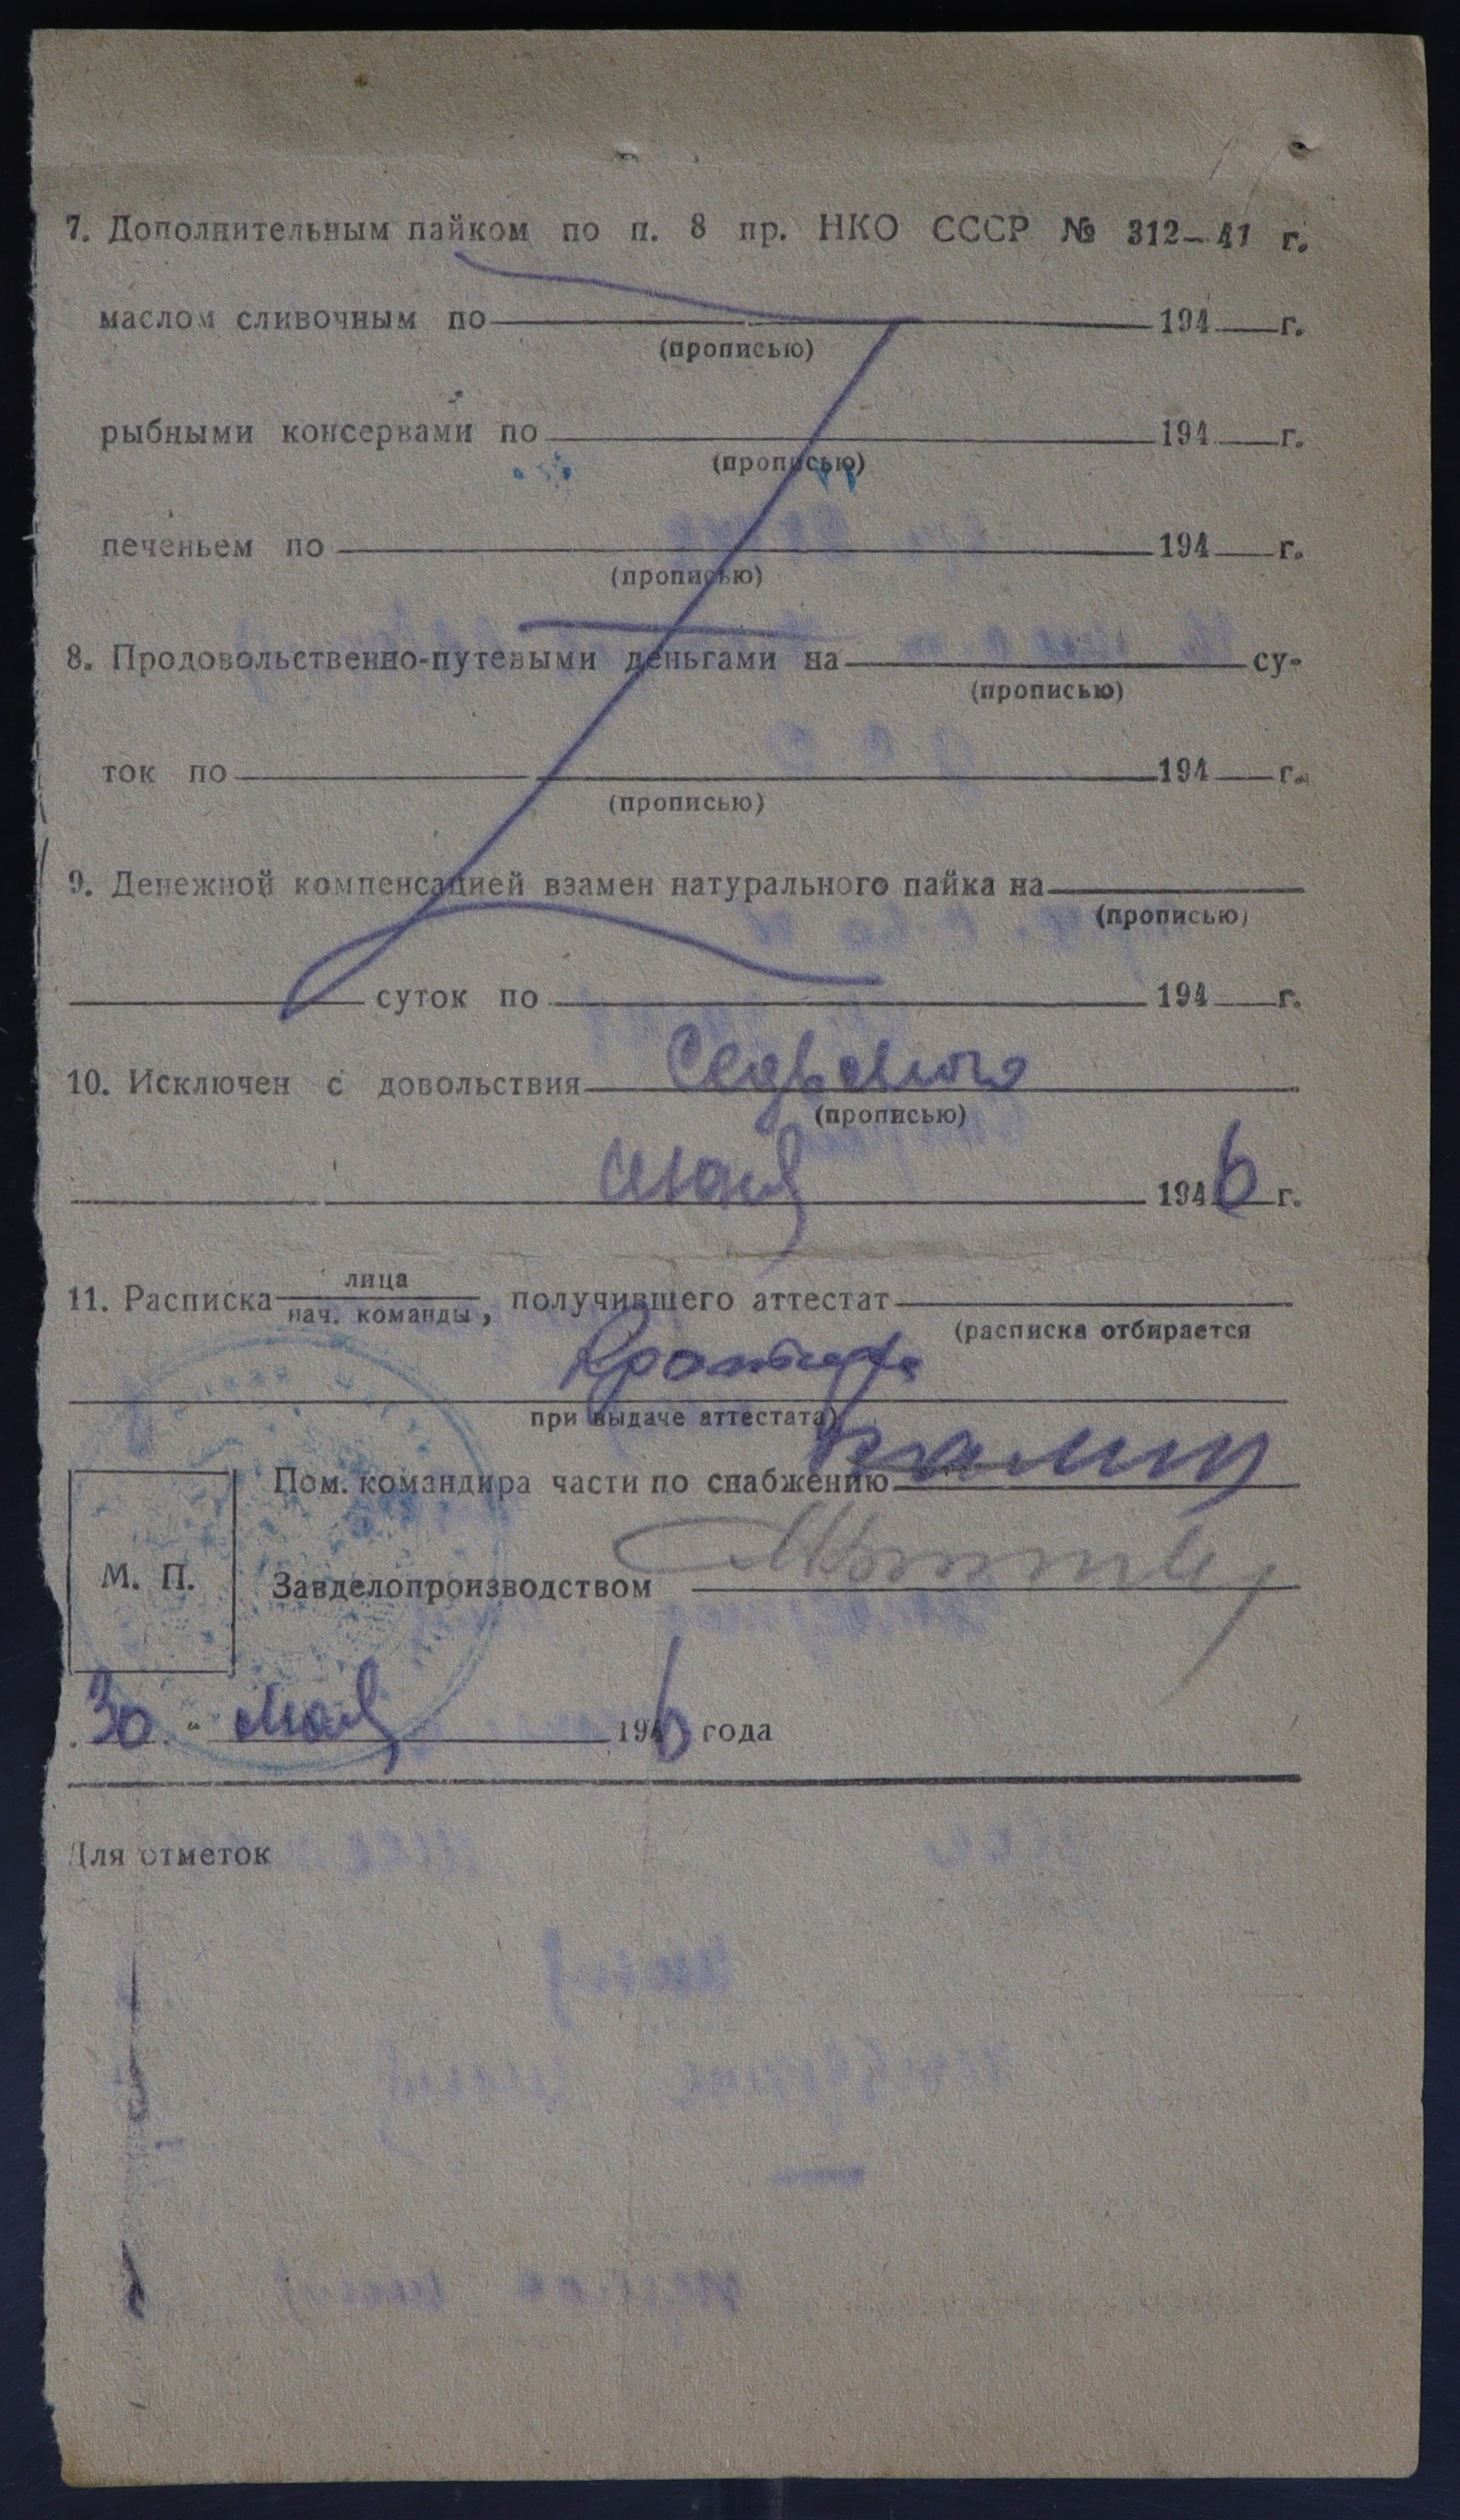 7. Дополнительным пайком по п. 8 пр. НКО СССР № 312—41 г.
маслом сливочным по 194 г.
(прописью)
рыбными консервами по 194 г.
(прописью)
печеньем по 194 г.
(прописью)
8. Продовольственно-путевыми деньгами на су-
(прописью)
ток по 194 г.
(прописью)
9. Денежной компенсацией взамен натурального пайка на
(прописью)
суток по 194 г.
10. Исключен с довольствия Седьмого
(прописью)
1946 г.
11. Расписка лица
нач. команды, получившего аттестат
(расписка отбирается
при выдаче аттестата)
Пом. командира части по снабжению
М. П.
Завделопроизводством
30 " мая 1946 года
Для отметок